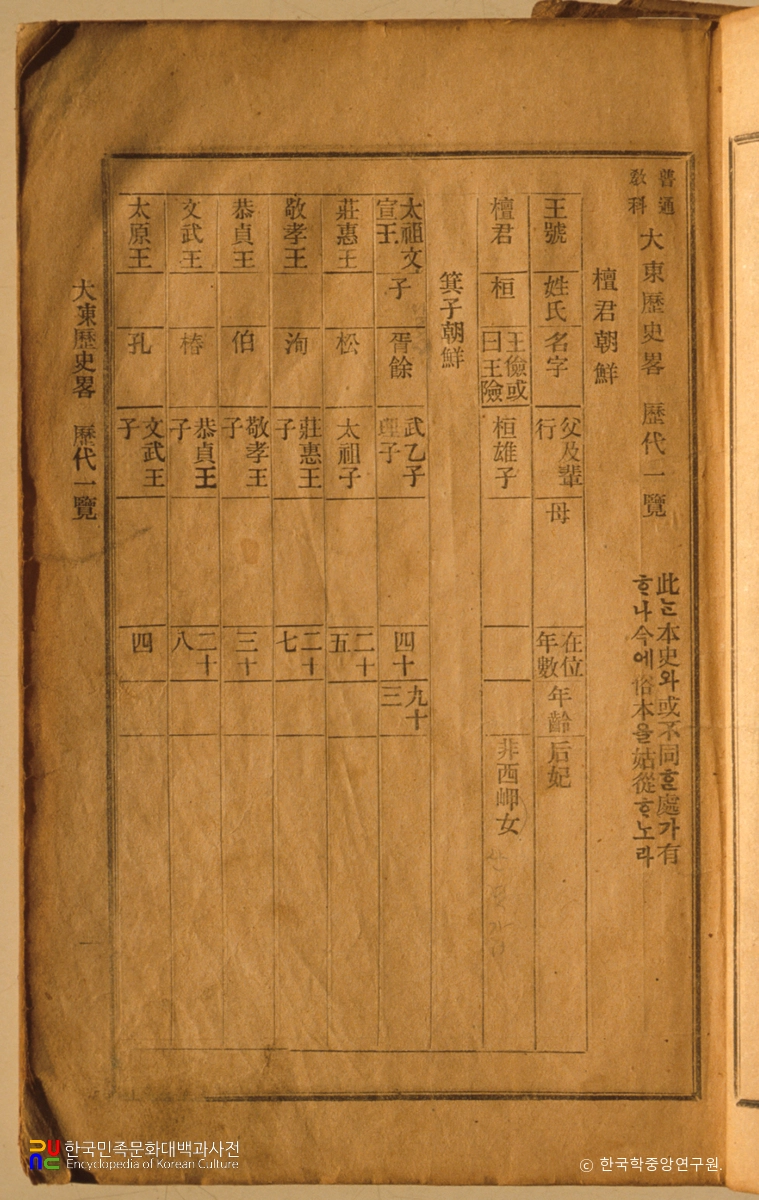 普通
敎科
大東歷史畧 歷代一覽
此는本史와或不同ᄒᆞᆫ處가有
ᄒᆞ나今에俗本을姑從ᄒᆞ노라
檀君朝鮮
王號 姓氏 名字 父及輩行 母 在位年數 年齡 后妃
檀君 桓 王儉或曰王險 桓雄子 非西岬女
箕子朝鮮
太祖文宣王 子 胥餘 武乙子 四十 九十三
莊惠王 松 太祖子 二十五
敬孝王 洵 莊惠王子 二十七
恭貞王 伯 敬孝王子 三十
文武王 椿 恭貞王子 二十八
太原王 孔 文武王子 四
大東歷史畧 歷代一覽
한국민족문화대백과사전
Encyclopedia of Korean Culture
© 한국학중앙연구원.